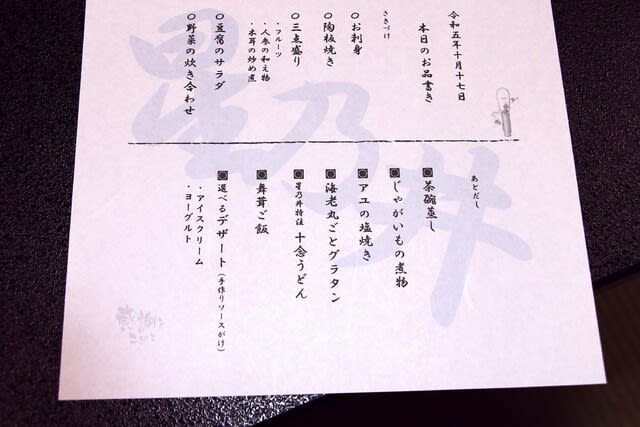 令和五年十月十七日
本日のお品書き
さきづけ
〇お刺身
〇陶板焼き
〇三点盛り
・フルーツ
・人参の和え物
・木耳の炒め煮
〇豆腐のサラダ
〇野菜の炊き合わせ
あとだし
◙茶碗蒸し
◙じゃがいもの煮物
◙アユの塩焼き
◙海老丸ごとグラタン
◙星乃井特注 十念うどん
◙舞茸ご飯
◙選べるデザート(手作りソースがけ)
・アイスクリーム
・ヨーグルト
星乃井